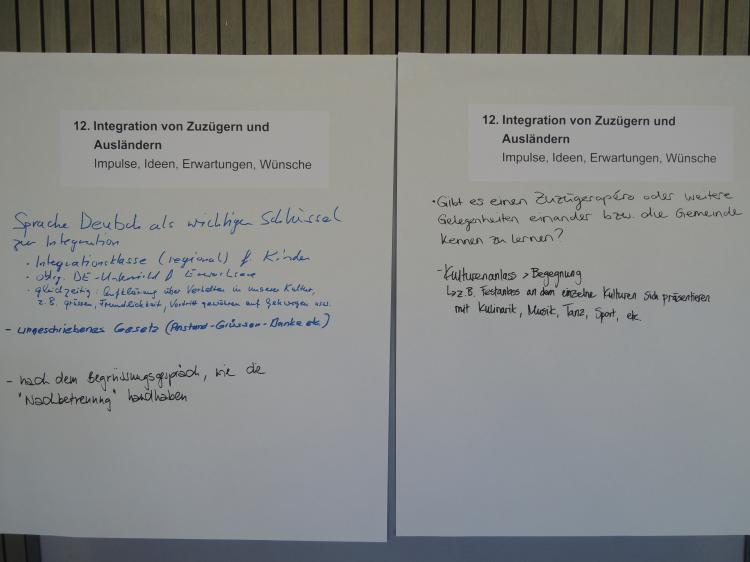 12. Integration von Zuzügern und
Ausländern
Impulse, Ideen, Erwartungen, Wünsche
Sprache Deutsch als wichtiger Schlüssel
zur Integration
· Integrationsklasse (regional) f. Kinder
· oblig. DE-Unterricht f. Erwachsene
· gleichzeitig: Aufklärung über Verhalten in unserer Kultur,
z.B. grüssen, Freundlichkeit, Vortritt gewähren auf Gehwegen usw.
- ungeschriebenes Gesetz (Anstand-Grüssen-Danke etc.)
- nach dem Begrüssungsgespräch, wie die
"Nachbetreuung" handhaben
12. Integration von Zuzügern und
Ausländern
Impulse, Ideen, Erwartungen, Wünsche
· Gibt es einen Zuzügerapéro oder weitere
Gelegenheiten einander bzw. die Gemeinde
kennen zu lernen?
- Kulturenanlass > Begegnung
↳ z.B. Festanlass an dem einzelne Kulturen sich präsentieren
mit Kulinarik, Musik, Tanz, Sport, etc.